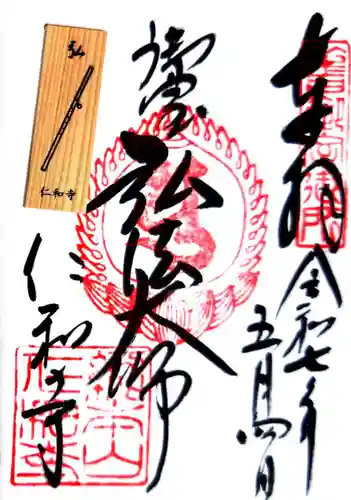 奉拝
令和七年
五月四日
御室
弘法大師
仁和寺
弘
仁和寺